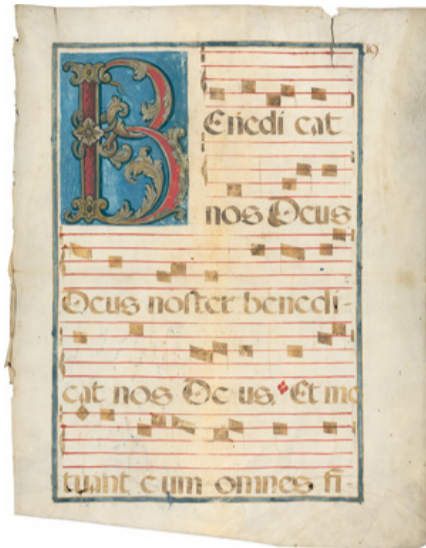 B
Enedi cat
nos Deus
Deus noster benedi-
cat nos De us, Et me
tuant eum omnes fi-